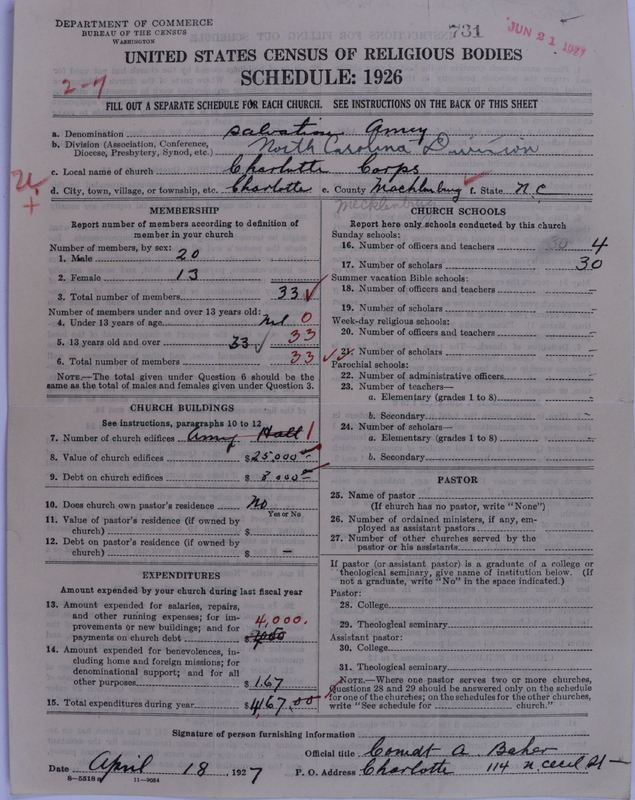 DEPARTMENT OF COMMERCE
BUREAU OF THE CENSUS
WASHINGTON
731
JUN 21 1927
UNITED STATES CENSUS OF RELIGIOUS BODIES
SCHEDULE: 1926
2-7
FILL OUT A SEPARATE SCHEDULE FOR EACH CHURCH. SEE INSTRUCTIONS ON THE BACK OF THIS SHEET
a. Denomination Salvation Army
b. Division (Association, Conference, Diocese, Presbytery, Synod, etc.) North Carolina Division
c. Local name of church Charlotte Corps
d. City, town, village, or township, etc. Charlotte e. County Macklenburg f. State N.C
Mecklenburg
MEMBERSHIP
Report number of members according to definition of
member in your church
Number of members, by sex:
1. Male 20
2. Female 13
3. Total number of members 33
Number of members under and over 13 years old:
4. Under 13 years of age Nil 0
5. 13 years old and over 33 33
6. Total number of members 33
NOTE.—The total given under Question 6 should be the
same as the total of males and females given under Question 3.
CHURCH BUILDINGS
See instructions, paragraphs 10 to 12
7. Number of church edifices Army Hall 1
8. Value of church edifices $25,000
9. Debt on church edifices $8,000
10. Does church own pastor's residence No
Yes or No
11. Value of pastor's residence (if owned by
church) $
12. Debt on pastor's residence (if owned by
church) $ —
EXPENDITURES
Amount expended by your church during last fiscal year
13. Amount expended for salaries, repairs,
and other running expenses; for im-
provements or new buildings; and for
payments on church debt $ 4,000.
14. Amount expended for benevolences, in-
cluding home and foreign missions; for
denominational support; and for all
other purposes $ 167
15. Total expenditures during year $4,167.00
CHURCH SCHOOLS
Report here only schools conducted by this church
Sunday schools:
16. Number of officers and teachers 30 4
17. Number of scholars 30
Summer vacation Bible schools:
18. Number of officers and teachers –
19. Number of scholars –
Week-day religious schools:
20. Number of officers and teachers –
21. Number of scholars –
Parochial schools:
22. Number of administrative officers –
23. Number of teachers—
a. Elementary (grades 1 to 8) –
b. Secondary –
24. Number of scholars—
a. Elementary (grades 1 to 8) –
b. Secondary –
PASTOR
25. Name of pastor
(If church has no pastor, write "None")
26. Number of ordained ministers, if any, em-
ployed as assistant pastors
27. Number of other churches served by the
pastor or his assistants
If pastor (or assistant pastor) is a graduate of a college or
theological seminary, give name of institution below. (If
not a graduate, write "No" in the space indicated.)
Pastor:
28. College
29. Theological seminary
Assistant pastor:
30. College
31. Theological seminary
NOTE.—Where one pastor serves two or more churches,
Questions 28 and 29 should be answered only on the schedule
for one of the churches; on the schedules for the other churches,
write "See schedule for church."
Signature of person furnishing information
Official title Comdt A Baker
Date April 18, 1927 P. O. Address Charlotte 114 N. Cecil St
8—5518a 11—9054